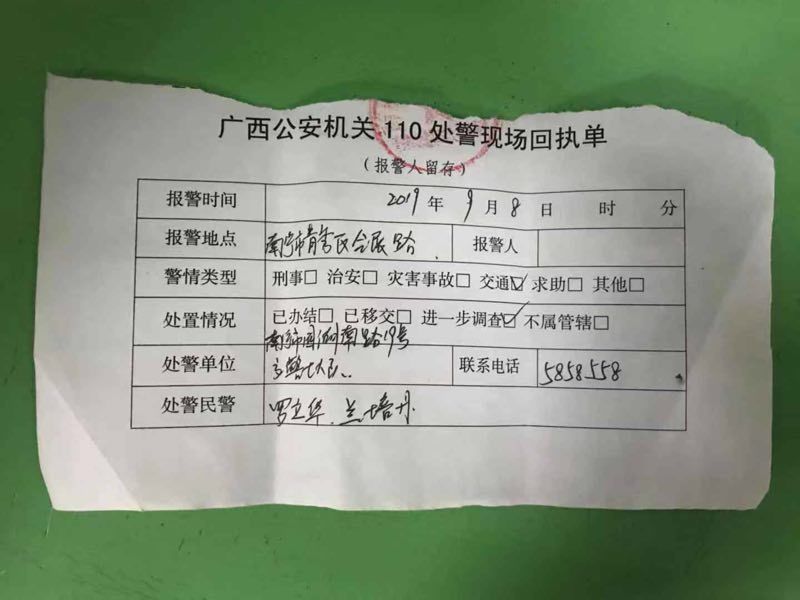 广西公安机关 110 处警现场回执单
（报警人留存）
报警时间 2019 年 9 月 8 日 时 分
报警地点 南宁市青秀区会展路 报警人
警情类型 刑事□ 治安□ 灾害事故□ 交通☑ 求助□ 其他□
处置情况 已办结□ 已移交□ 进一步调查☑ 不属管辖□
南宁市园湖南路19号
处警单位 交警七大队 联系电话 5858558
处警民警 罗立华、兰培丹